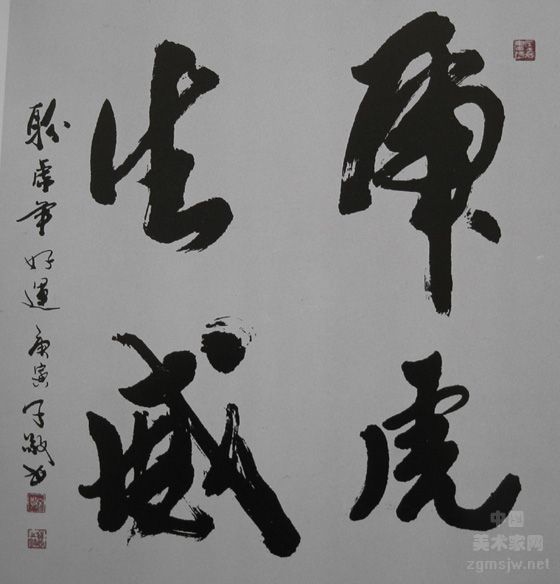 虎虎
生威
盼虎年好運 庚寅 子敬书
中国
美术家网
zgmsjw.net